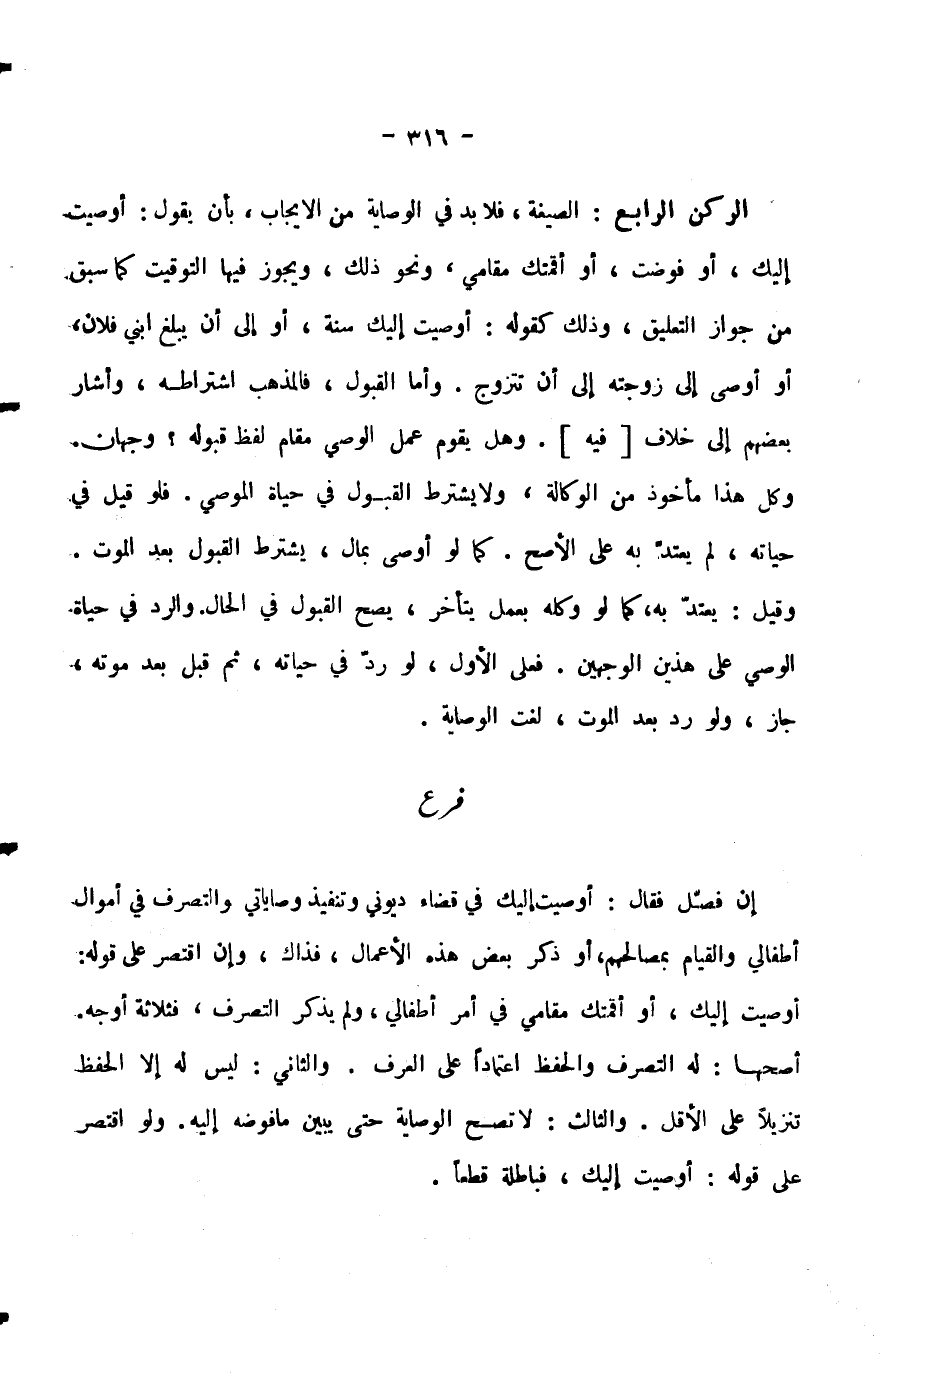 - ٣١٦ -
الركن الرابع : الصيغة ، فلا بد في الوصاية من الايجاب ، بأن يقول : أوصيت
إليك ، أو فوضت ، أو أقمتك مقامي ، ونحو ذلك ، ويجوز فيها التوقيت كما سبق
من جواز التعليق ، وذلك كقوله : أوصيت إليك سنة ، أو إلى أن يبلغ ابني فلان ،
أو أوصى إلى زوجته إلى أن تتزوج . وأما القبول ، فالمذهب اشتراطه ، وأشار
بعضهم إلى خلاف [ فيه ] . وهل يقوم عمل الوصي مقام لفظ قبوله ؟ وجهان .
وكل هذا مأخوذ من الوكالة ، ولا يشترط القبول في حياة الموصي . فلو قبل في
حياته ، لم يعتدّ به على الأصح . كما لو أوصى بمال ، يشترط القبول بعد الموت .
وقيل : يعتدّ به ، كما لو وكله بعمل يتأخر ، يصح القبول في الحال . والرد في حياة
الوصي على هذين الوجهين . فعلى الأول ، لو ردّ في حياته ، ثم قبل بعد موته ،
جاز ، ولو رد بعد الموت ، لغت الوصاية .
فرع
إن فصّل فقال : أوصيت إليك في قضاء ديوني وتنفيذ وصاياتي والتصرف في أموال
أطفالي والقيام بمصالحهم ، أو ذكر بعض هذه الأعمال ، فذاك ، وإن اقتصر على قوله :
أوصيت إليك ، أو أقمتك مقامي في أمر أطفالي ، ولم يذكر التصرف ، فثلاثة أوجه .
أصحها : له التصرف والحفظ اعتماداً على العرف . والثاني : ليس له إلا الحفظ
تنزيلاً على الأقل . والثالث : لا تصح الوصاية حتى يبين مافوضه إليه . ولو اقتصر
على قوله : أوصيت إليك ، فباطلة قطعاً .